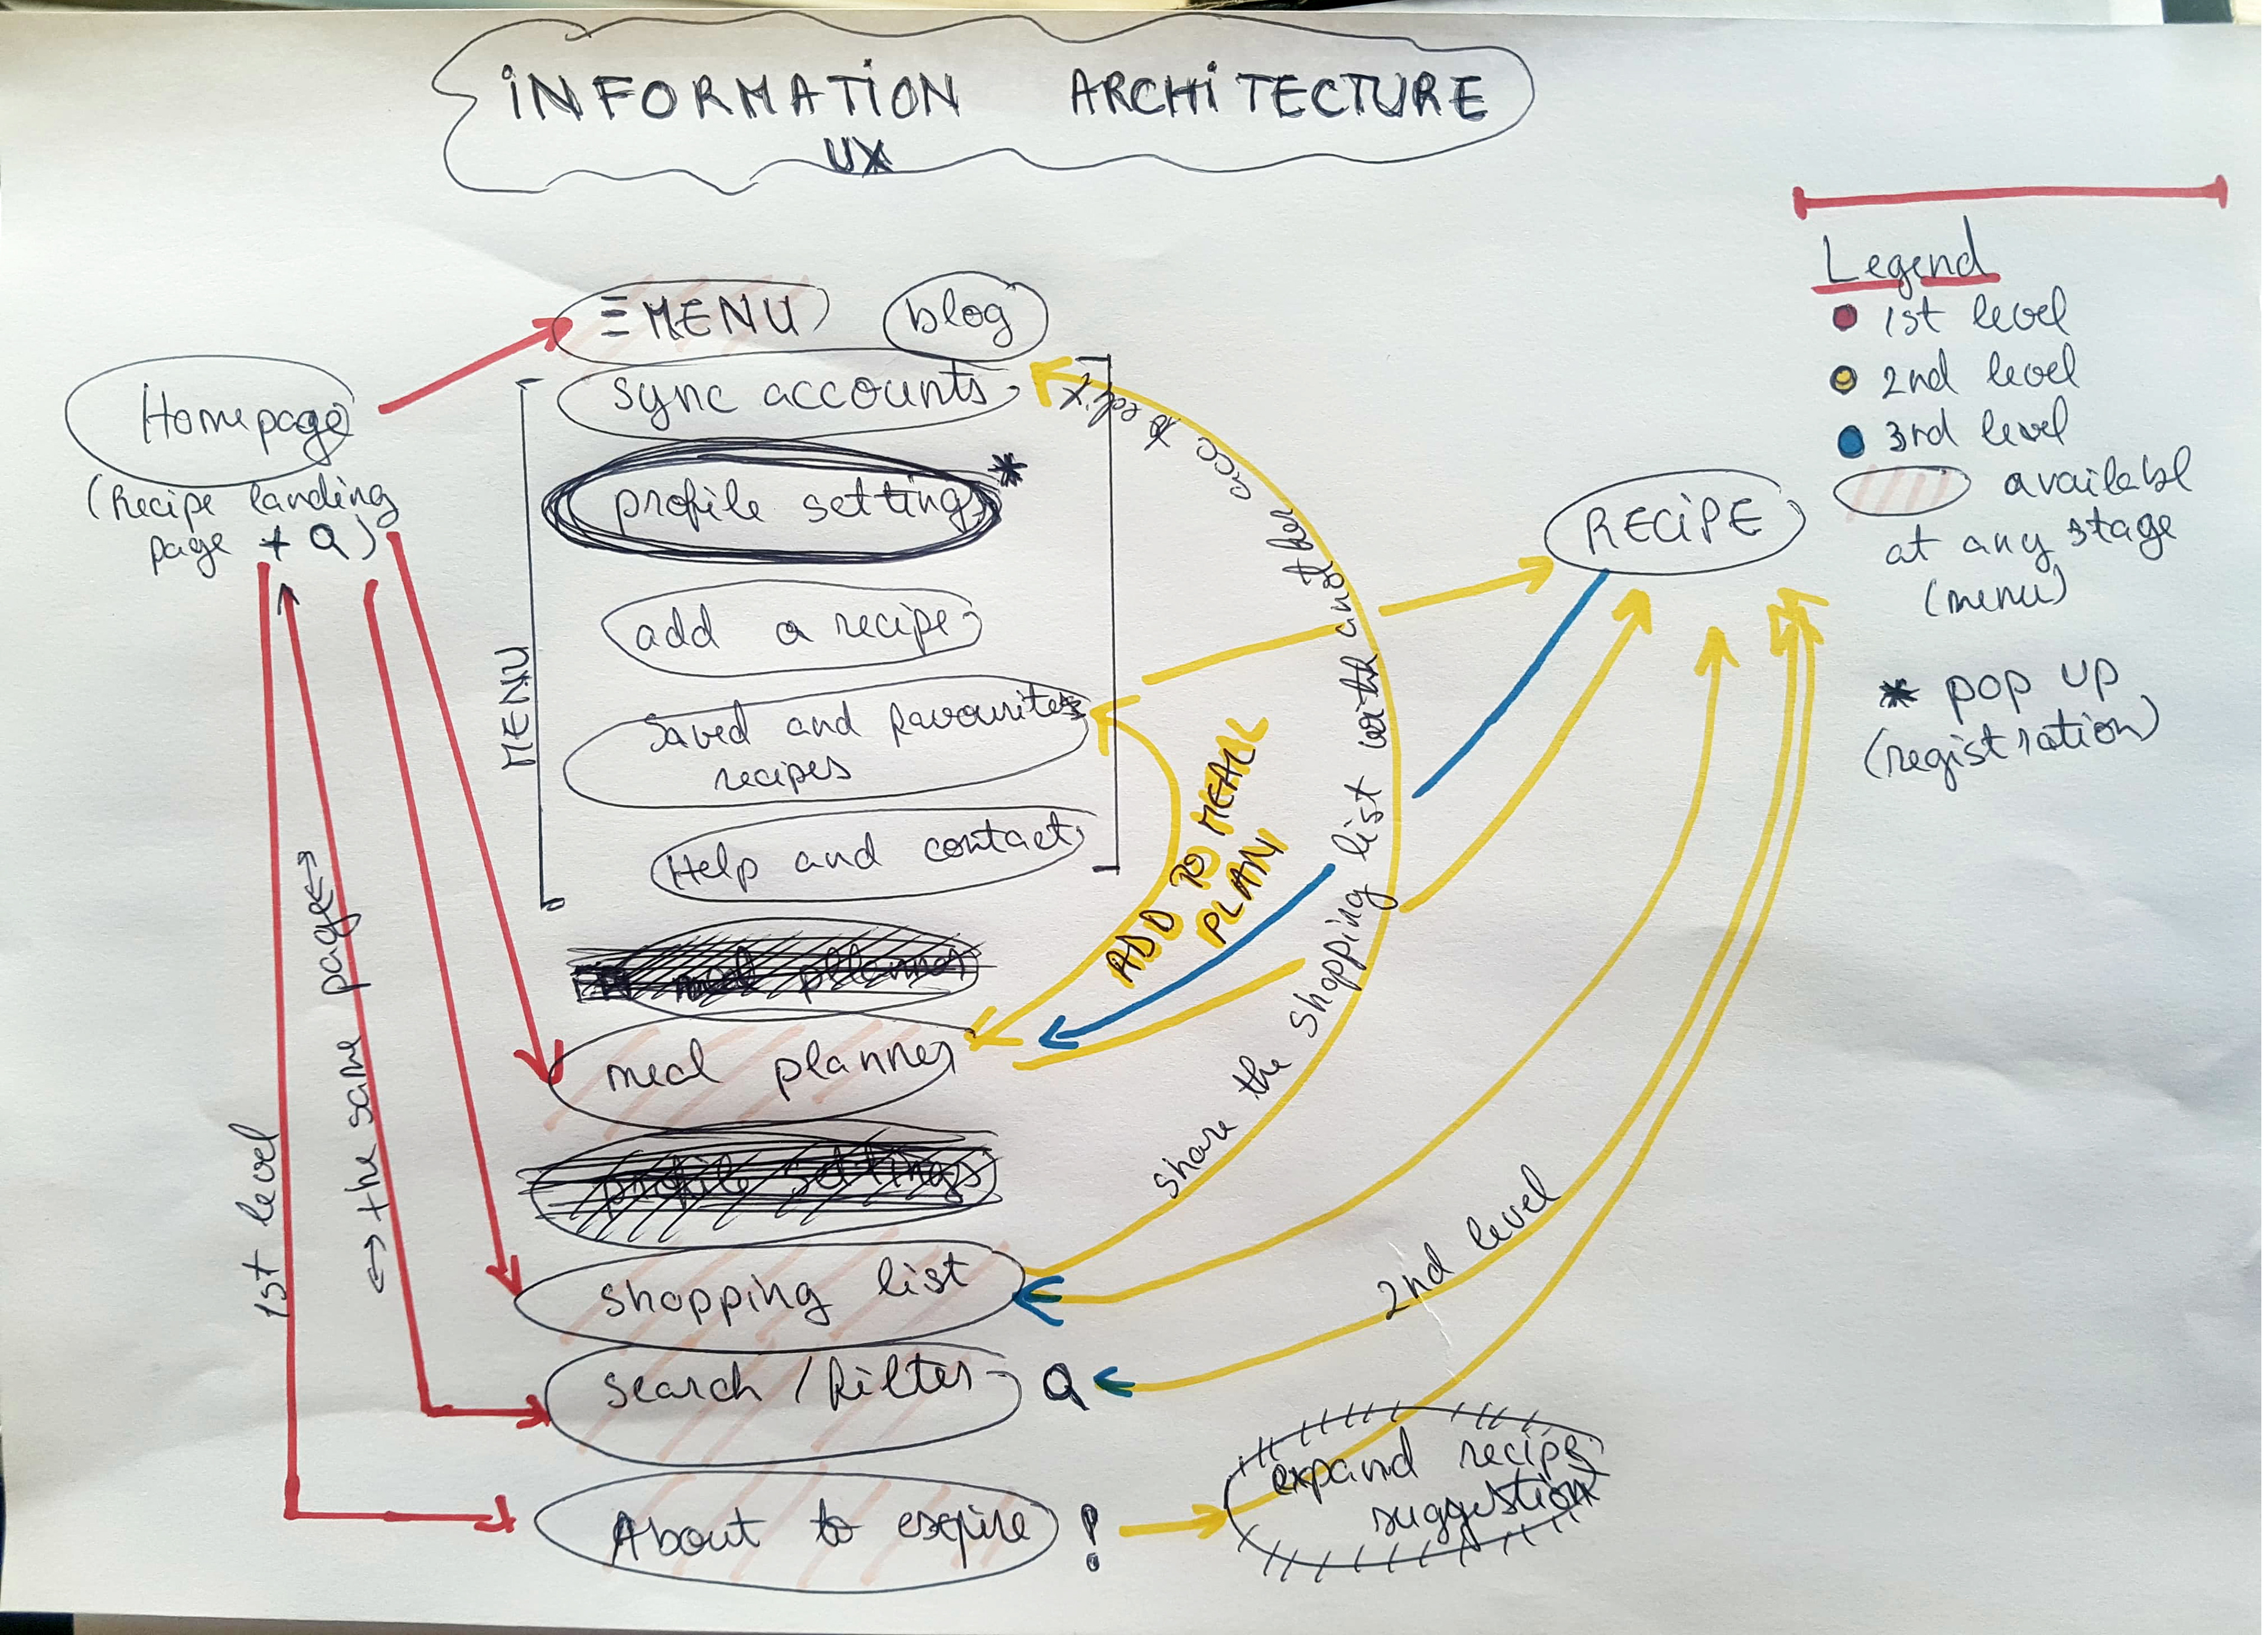 INFORMATION ARCHITECTURE
UX
MENU
blog
Homepage
(Recipe landing
page + Q)
sync accounts
profile settings *
add a recipe
Saved and favourites
recipes
Help and contact
MENU
meal planner
meal planner
profile settings
shopping list
search / filter Q
About to expire !
expand recipe
suggestion
1st level
↔ the same page ↔
ADD TO MEAL
PLAN
share the shopping list with another acc & edit
2nd level
RECIPE
Legend
1st level
2nd level
3rd level
availabl
at any stage
(menu)
* pop up
(registration)